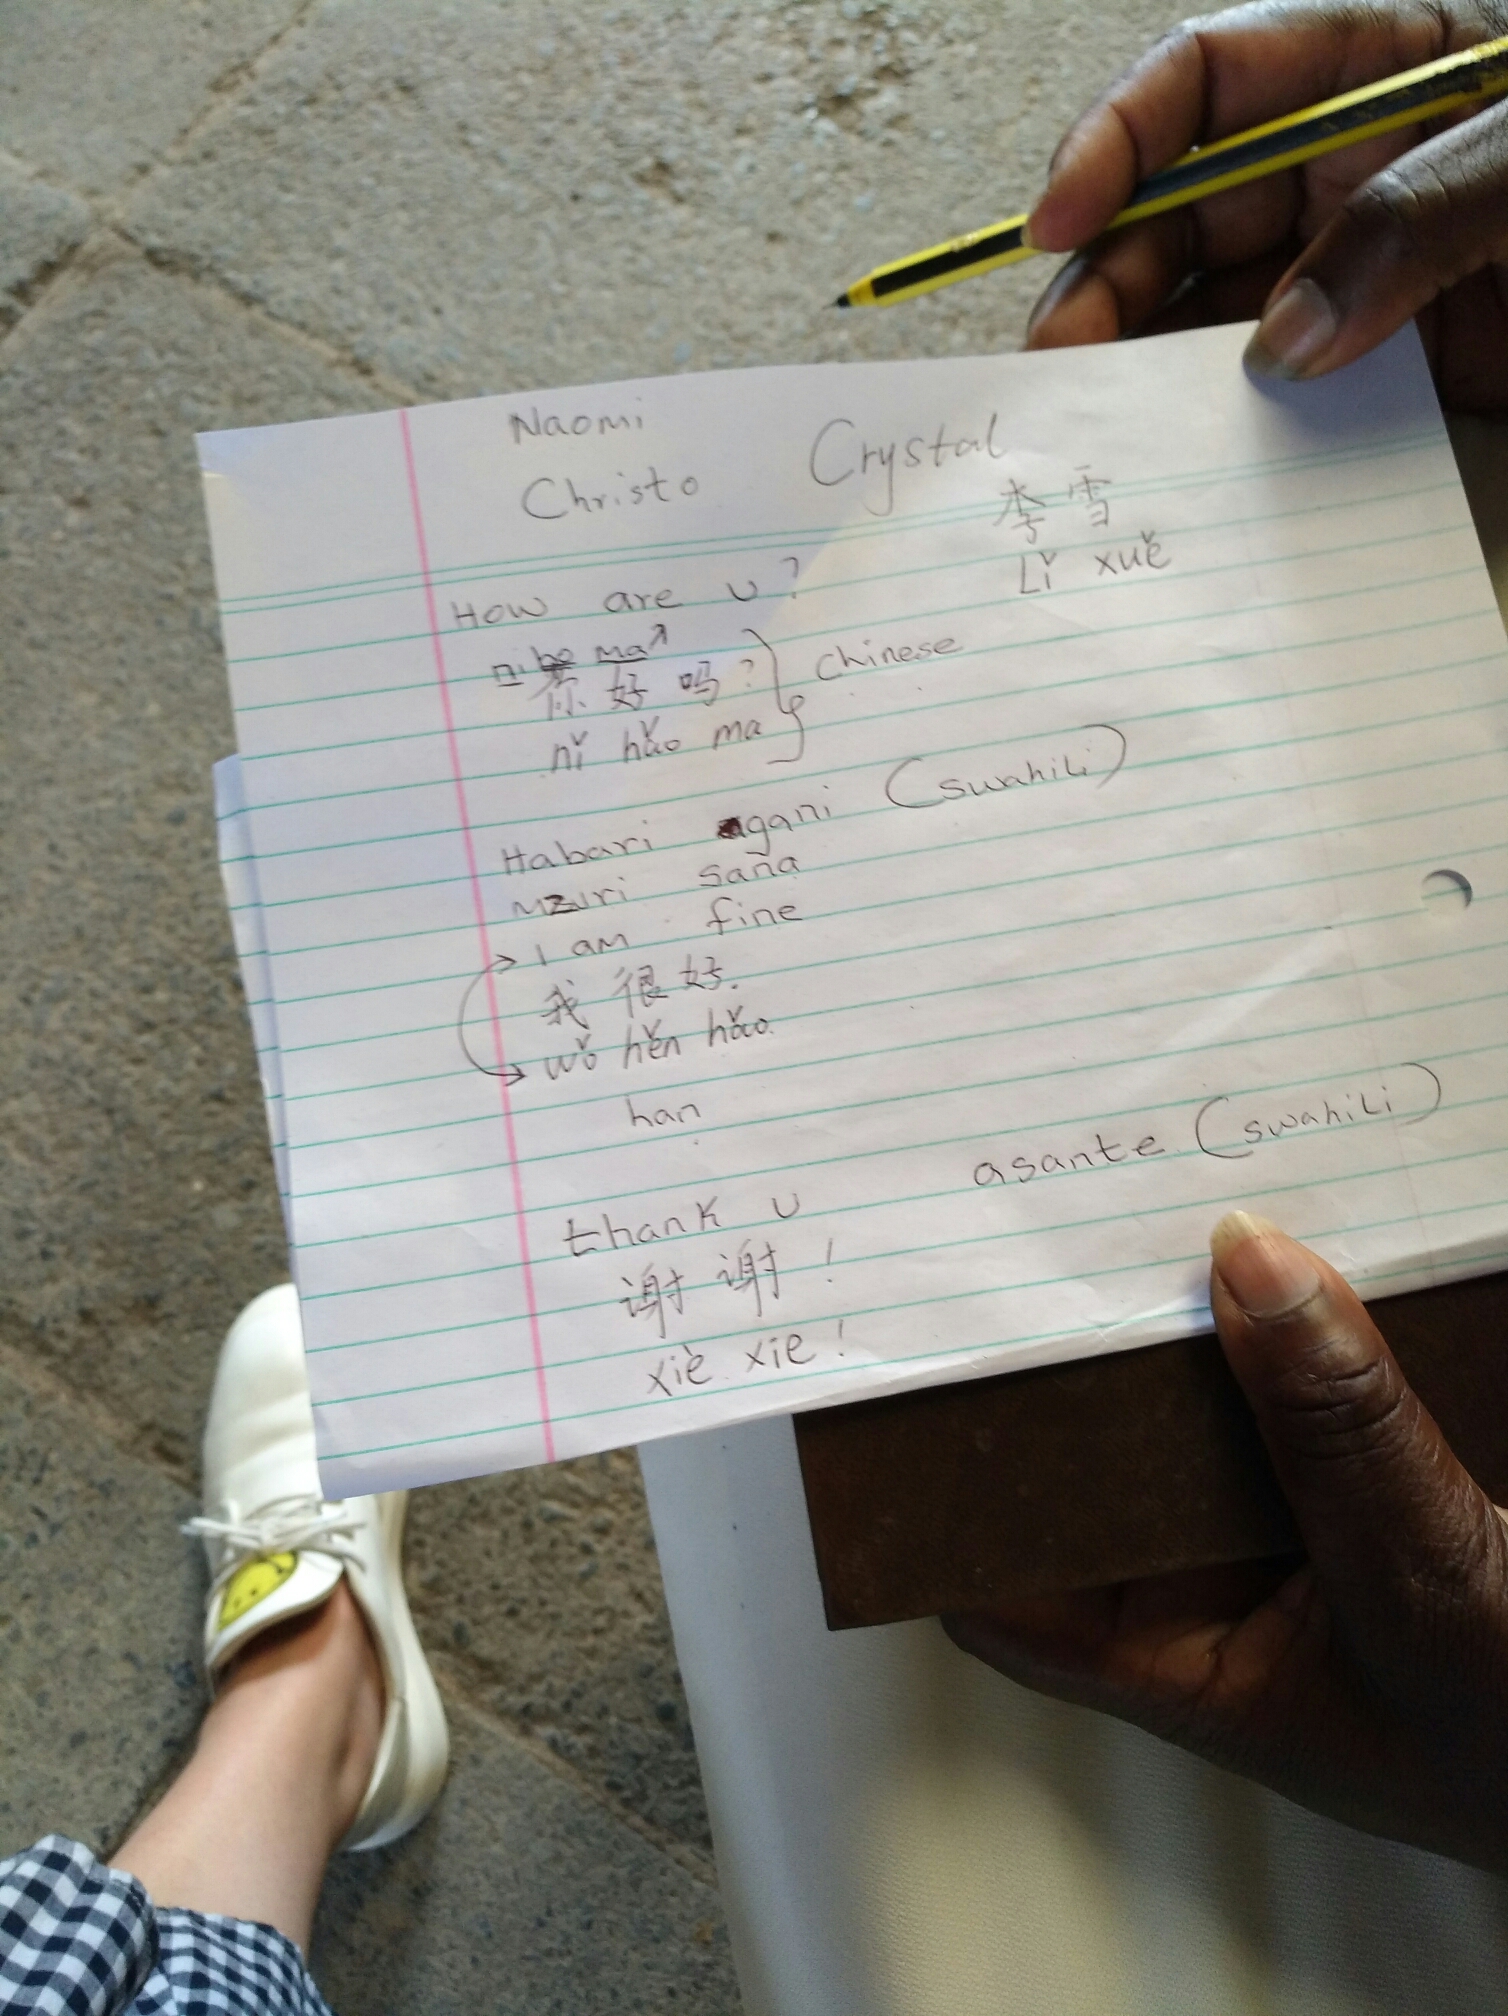 Naomi
Christo
Crystal
李雪
Lǐ xuě
How are u?
ni ho ma
你好吗?
nǐ hǎo ma
Chinese
Habari gani (swahili)
mzuri sana
I am fine
我很好.
wǒ hěn hǎo.
han
thank u
asante (swahili)
谢谢!
xiè xie!